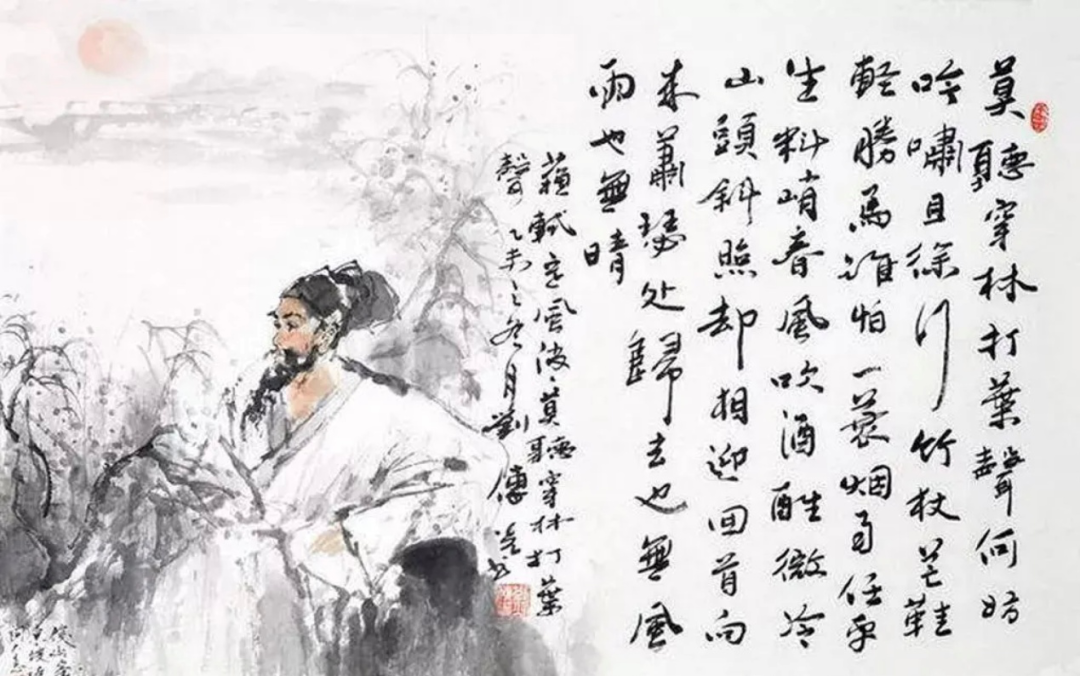 莫聽穿林打葉聲何妨
吟嘯且徐行竹杖芒鞋
軽勝馬誰怕一蓑烟雨任平
生料峭春風吹酒醒微冷
山頭斜照却相迎回首向
来蕭瑟处歸去也無風
雨也無晴
蘇軾定風波莫聽穿林打葉
聲乙未之冬月劉傅